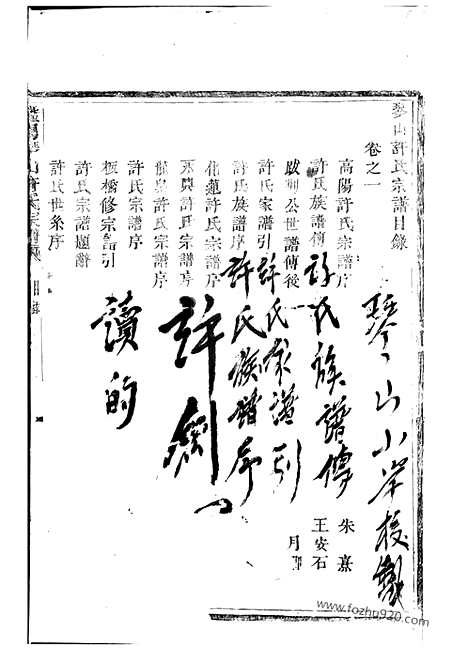 琴山許氏宗譜目錄
卷之一
高陽許氏宗譜序
許氏族譜傳
跋刺公世譜傳後
許氏家譜引
許氏族譜序
花蓮許氏宗譜序
許氏宗譜序
宗譜序
許氏宗譜序
板橋修宗譜引
許氏宗譜題辭
許氏世系序
朱熹
王安石
琴山小岸校製
許氏族譜傳
許氏家譜引
許氏族譜序
許劍
讀的
www.fozhu920.com